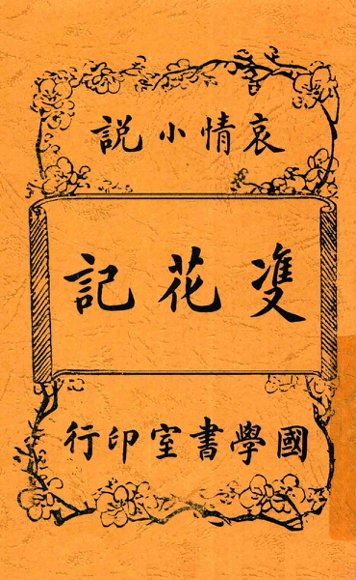 哀情小説
雙花記
國學書室印行